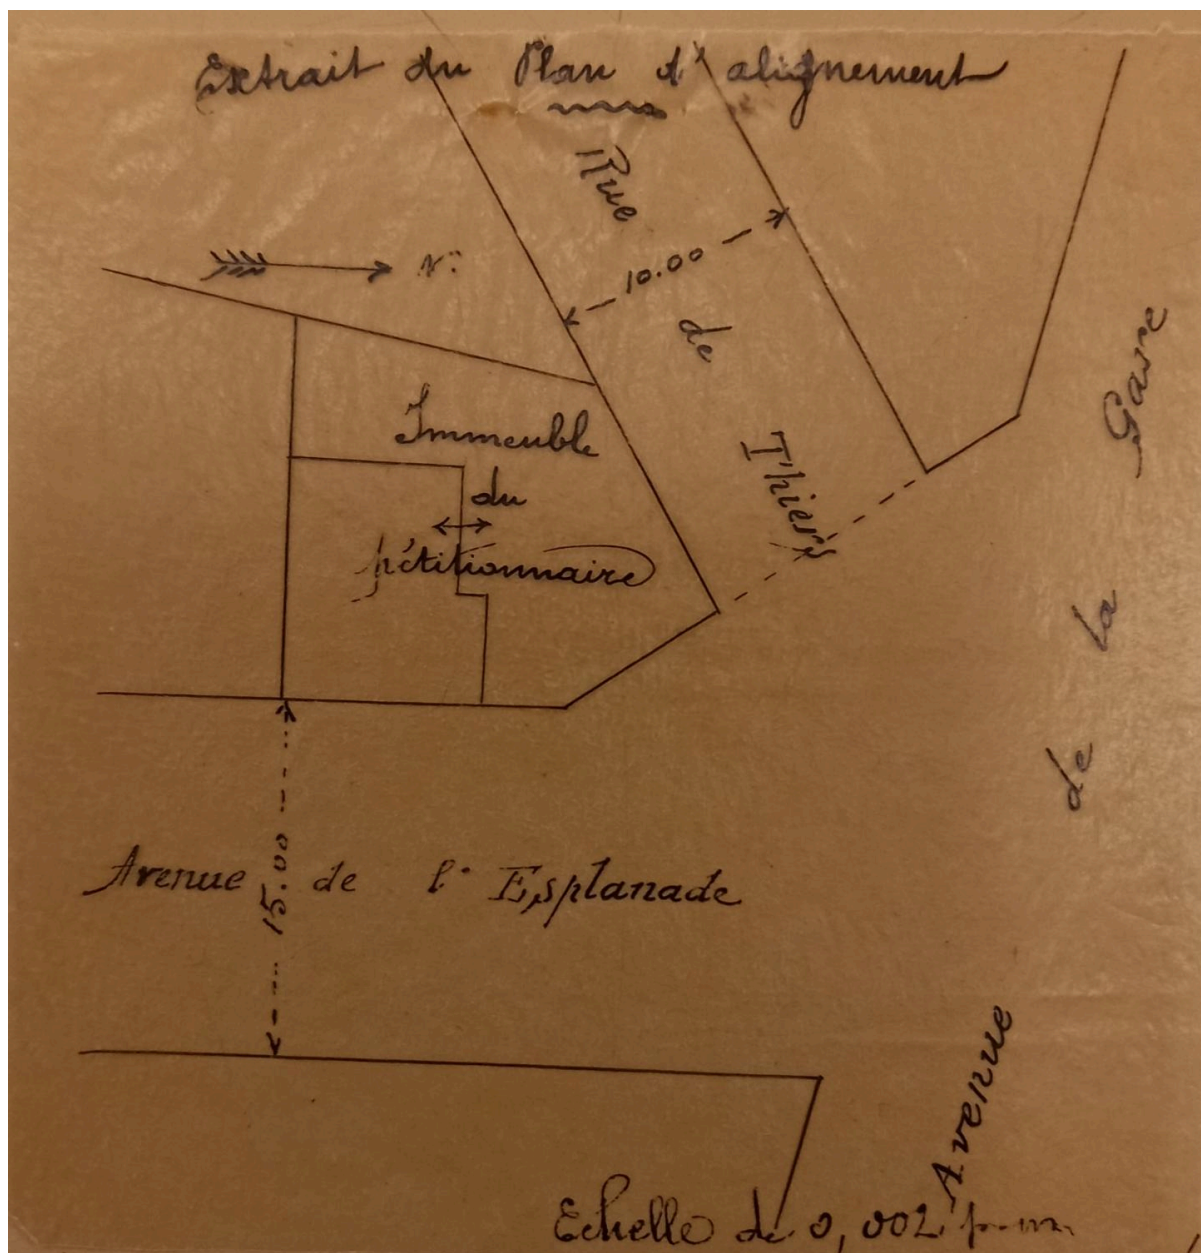 Extrait du Plan d'alignement
Rue de Thiers
10.00
N.
Immeuble
du
pétitionnaire
Avenue de l'Esplanade
15.00
Avenue de la Gare
Echelle de 0,002 p. m.